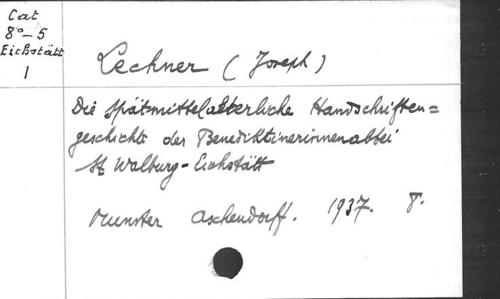 Cat
8° - 5
Eichstätt
1
Lechner (Joseph)
Die spätmittelalterliche Handschriften=
geschichte der Benediktinerinnenabtei
St Walburg - Eichstätt
Munster Aschendorff. 1937. 8.